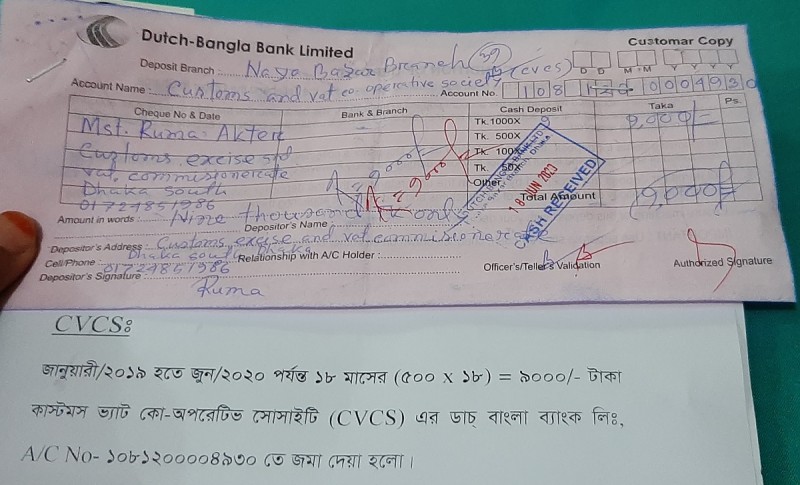 Dutch-Bangla Bank Limited
Customar Copy
Deposit Branch : Naya Bazar Branch
D D M M Y Y Y Y
Account Name : Customs and vat co-operative society (cvcs)
Account No. 108 120 0004930
Cheque No & Date Bank & Branch Cash Deposit Taka Ps.
Mst. Ruma Akter Tk. 1000X 9,000/-
Customs, excise Tk. 500X
vat, commisionerate Tk. 100X
Dhaka South Tk. 50X
01724851986 Other
Total Amount 9,000/-
18 JUN 2020
CASH RECEIVED
Amount in words : Nine thousand tk only
Depositor's Name :
Depositor's Address : Customs, excise and vat commisionerate
Dhaka south, Dhaka
Cell/Phone : 01724851986 Relationship with A/C Holder :
Depositor's Signature : Ruma
Officer's/Teller's Validation
Authorized Signature
CVCS:
জানুয়ারী/২০১৯ হতে জুন/২০২০ পর্যন্ত ১৮ মাসের (৫০০ X ১৮) = ৯০০০/- টাকা
কাস্টমস ভ্যাট কো-অপরেটিভ সোসাইটি (CVCS) এর ডাচ্ বাংলা ব্যাংক লিঃ,
A/C No- ১০৮১২০০০০৪৯৩০ তে জমা দেয়া হলো।